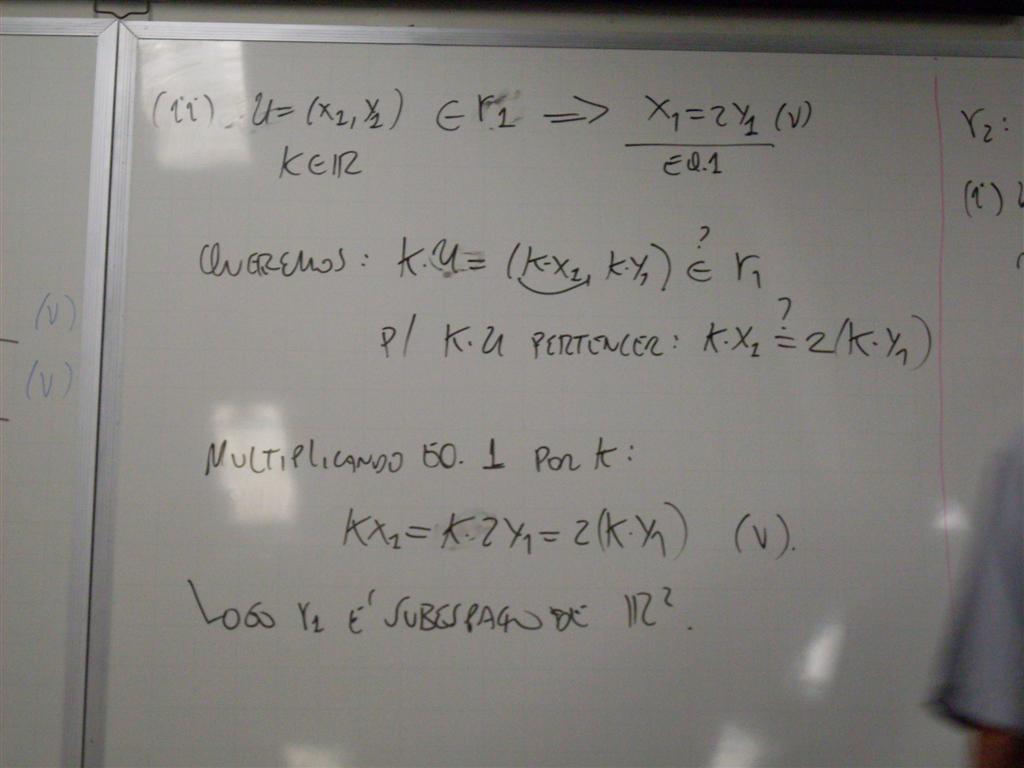 (ii) U = (x₁, y₁) ∈ r₁ ⟹ x₁ = 2y₁ (V)
K ∈ ℝ
EQ.1
QUEREMOS: K.U = (K.x₁, K.y₁) ∈? r₁
P/ K.U PERTENCER: K.x₁ =? 2(K.y₁)
MULTIPLICANDO EQ. 1 POR K:
Kx₁ = K.2y₁ = 2(K.y₁) (V).
LOGO r₁ É SUBESPAÇO DE ℝ².
(V)
(V)
r₂:
(i)